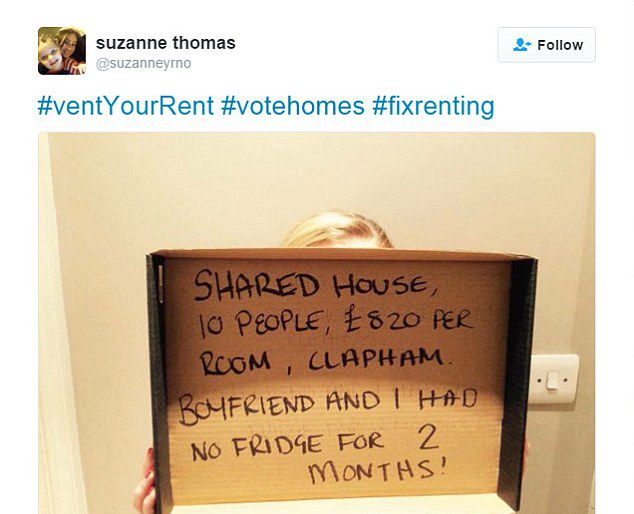 suzanne thomas
@suzanneyrno
Follow
#ventYourRent #votehomes #fixrenting
SHARED HOUSE,
10 PEOPLE, £820 PER
ROOM, CLAPHAM.
BOYFRIEND AND I HAD
NO FRIDGE FOR 2
MONTHS!